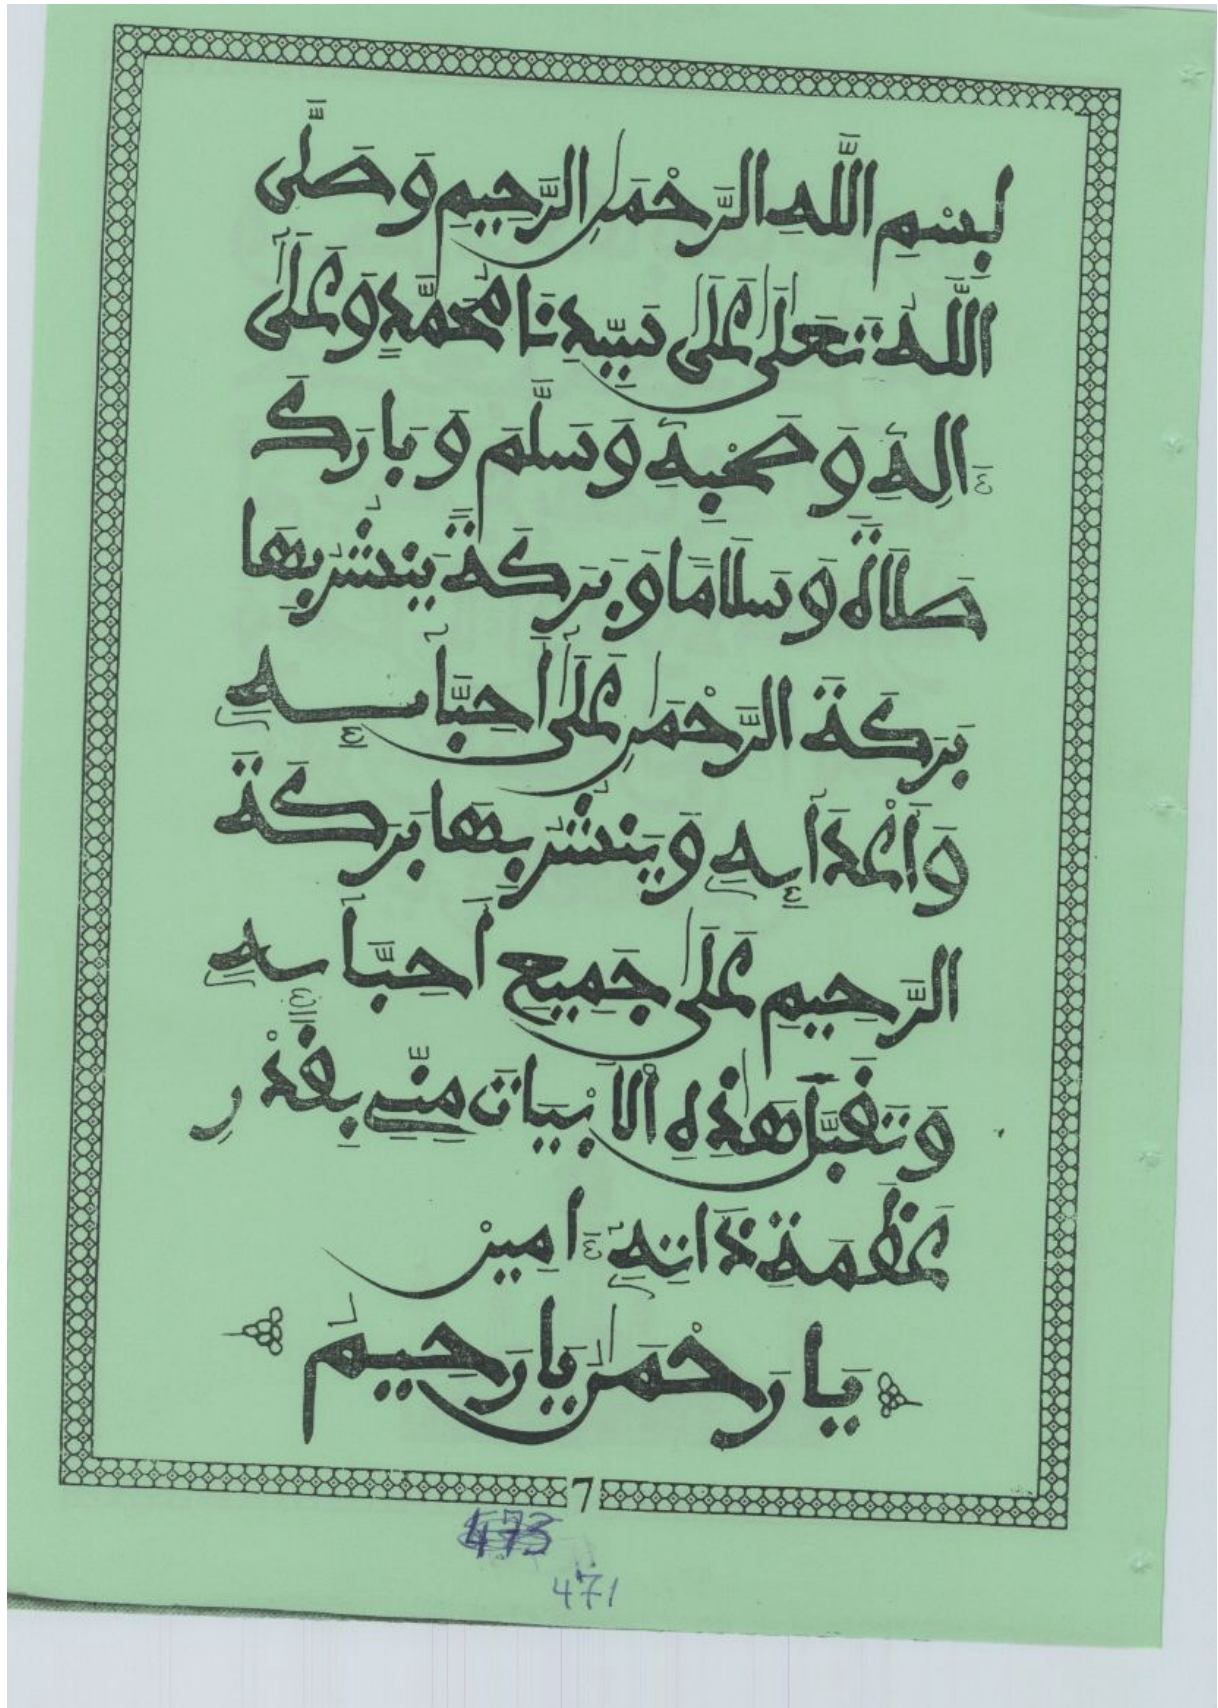 بِسْمِ اللَّهِ الرَّحْمَٰنِ الرَّحِيمِ وَصَلَّى
اللَّهُ تَعَلَىٰ عَلَىٰ سَيِّدِنَا مُحَمَّدٍ وَعَلَىٰ
ءَالِهِ وَصَحْبِهِ وَسَلَّمَ وَبَارَكَ
صَلَاةً وَسَلَامًا وَبَرَكَةً يَنْشُرُ بِهَا
بَرَكَةَ الرَّحْمَٰنِ عَلَىٰ أَحِبَّآئِهِ
وَأَعْدَآئِهِ وَيَنْشُرُ بِهَا بَرَكَةَ
الرَّحِيمِ عَلَىٰ جَمِيعِ أَحِبَّآئِهِ
وَتَقَبَّلْ هَٰذِهِ الْأَبْيَاتَ مِنِّي بِقَدْرِ
عَظَمَةِ ذَاتِهِ ءَامِين
يَا رَحْمَٰنُ يَا رَحِيمُ
7
473
471